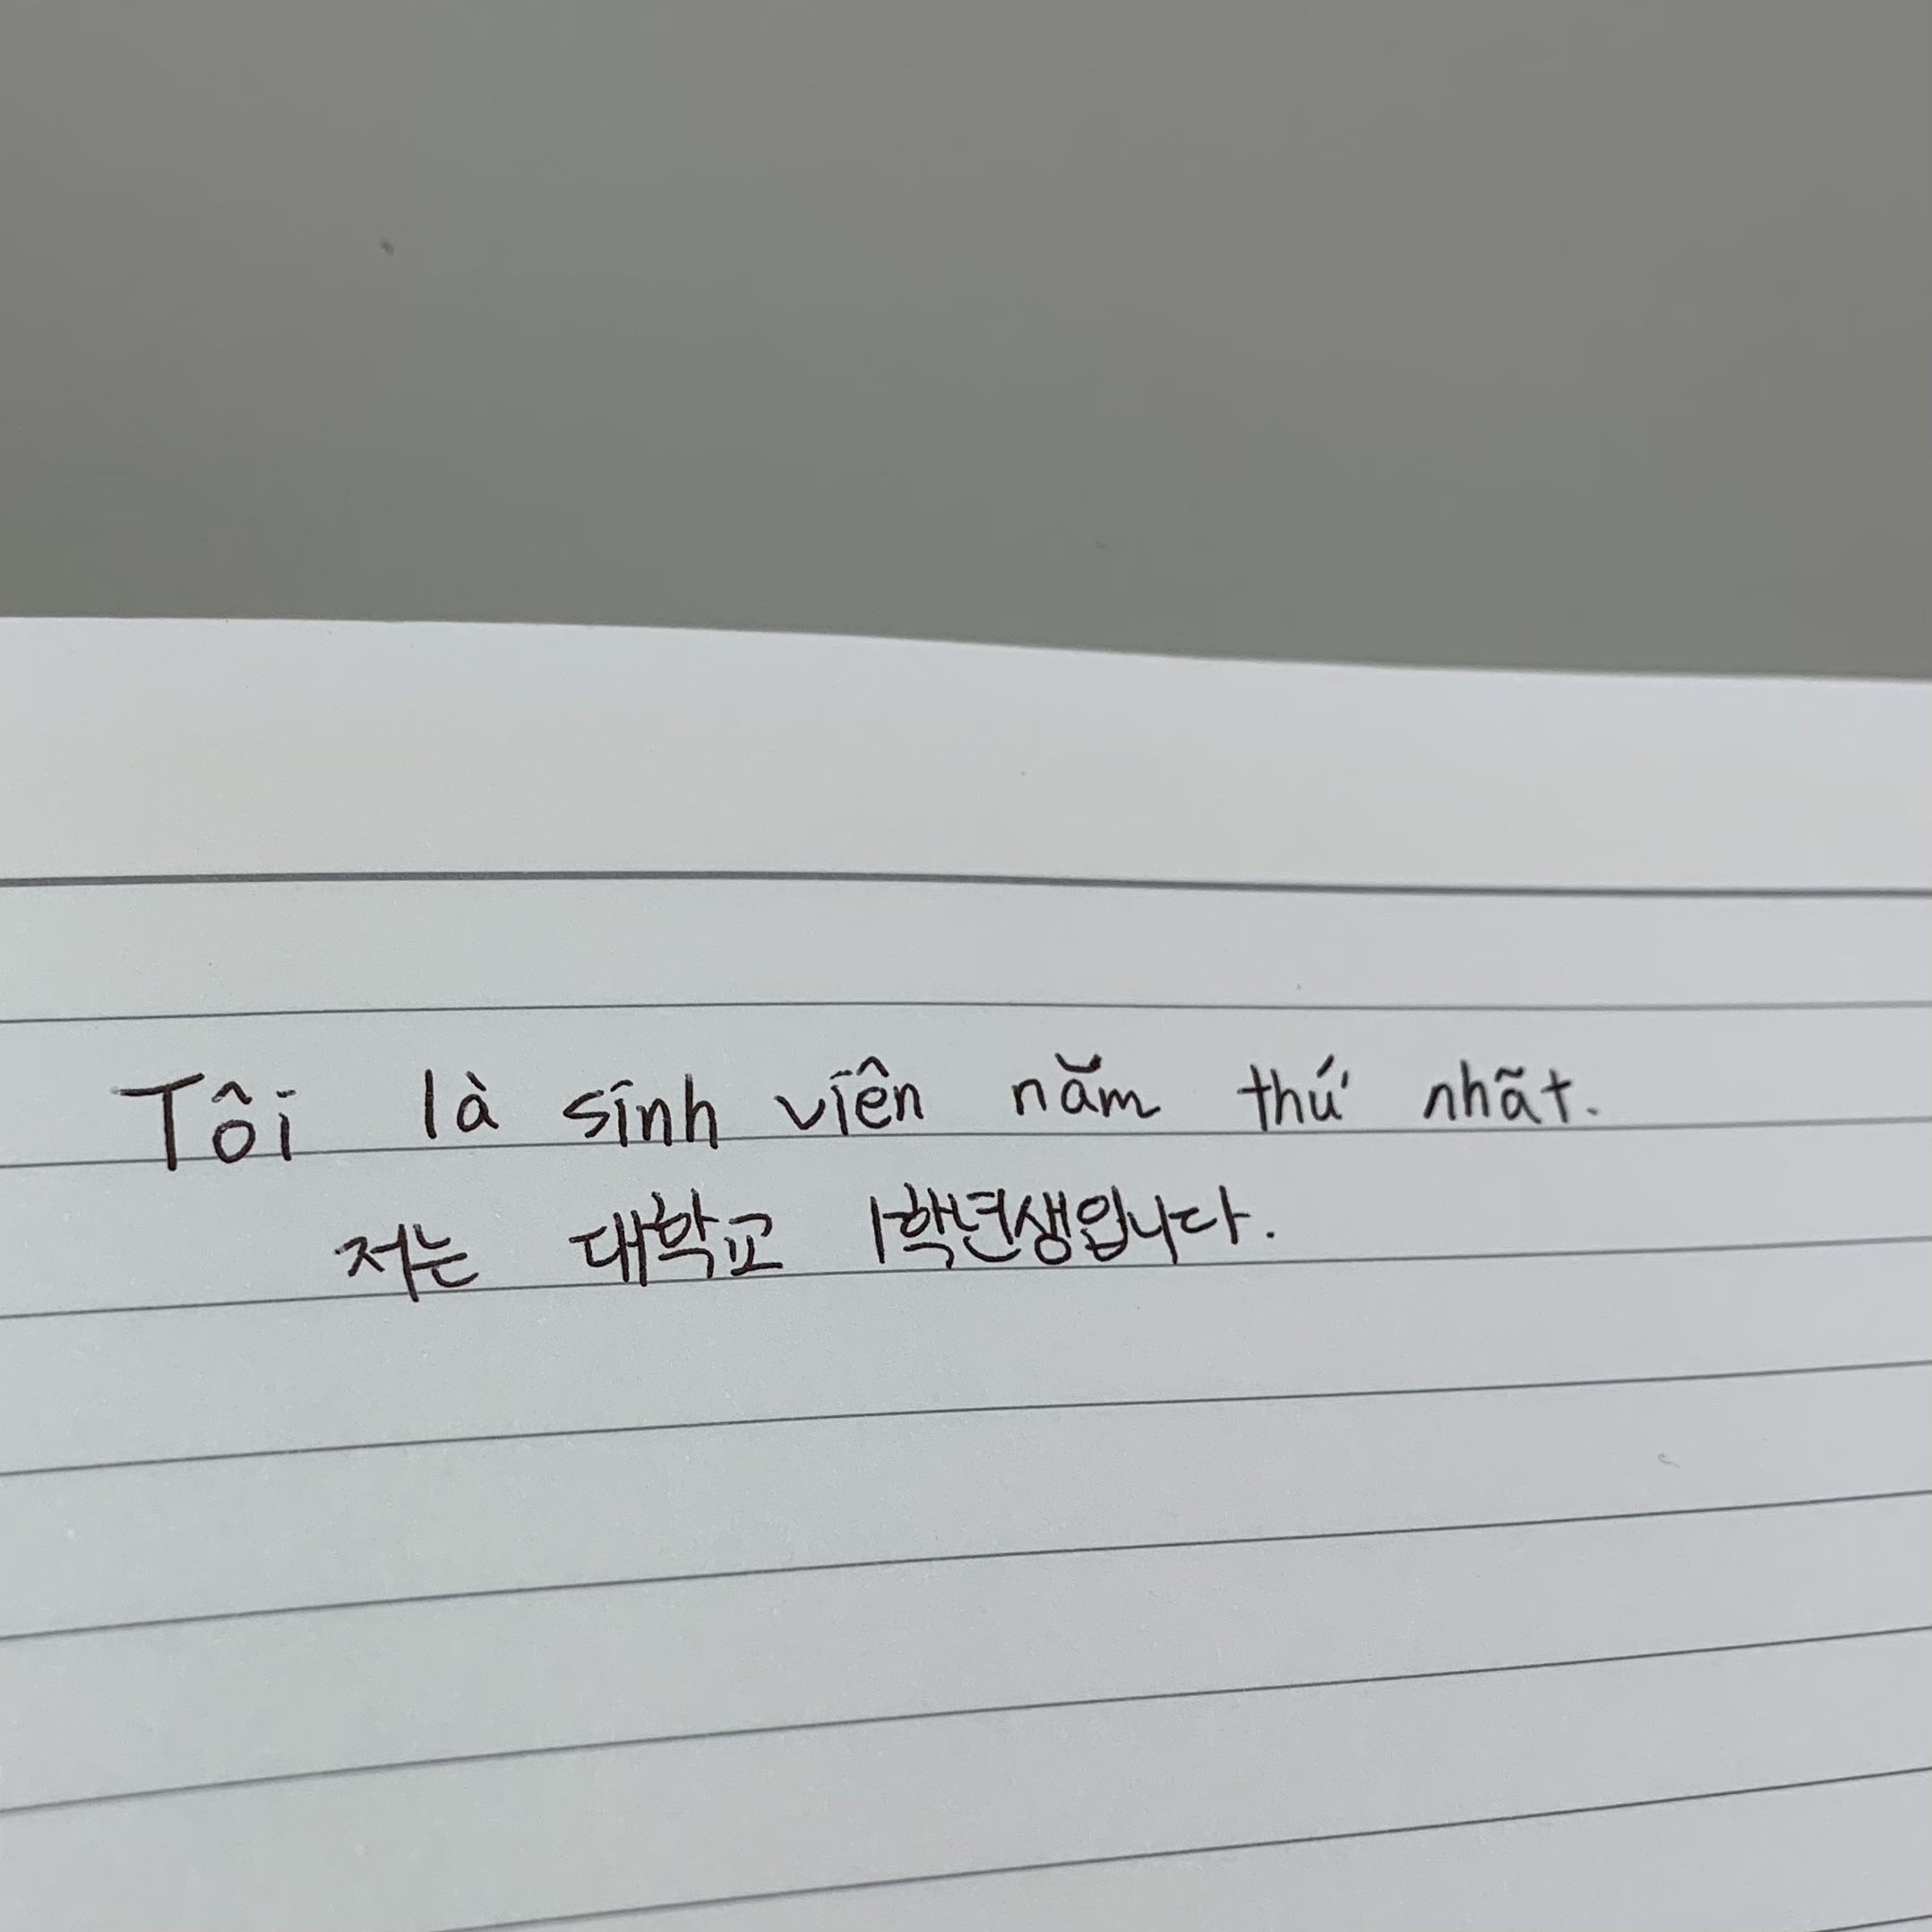 Tôi là sinh viên năm thứ nhãt.
저는 대학교 1학년생입니다.